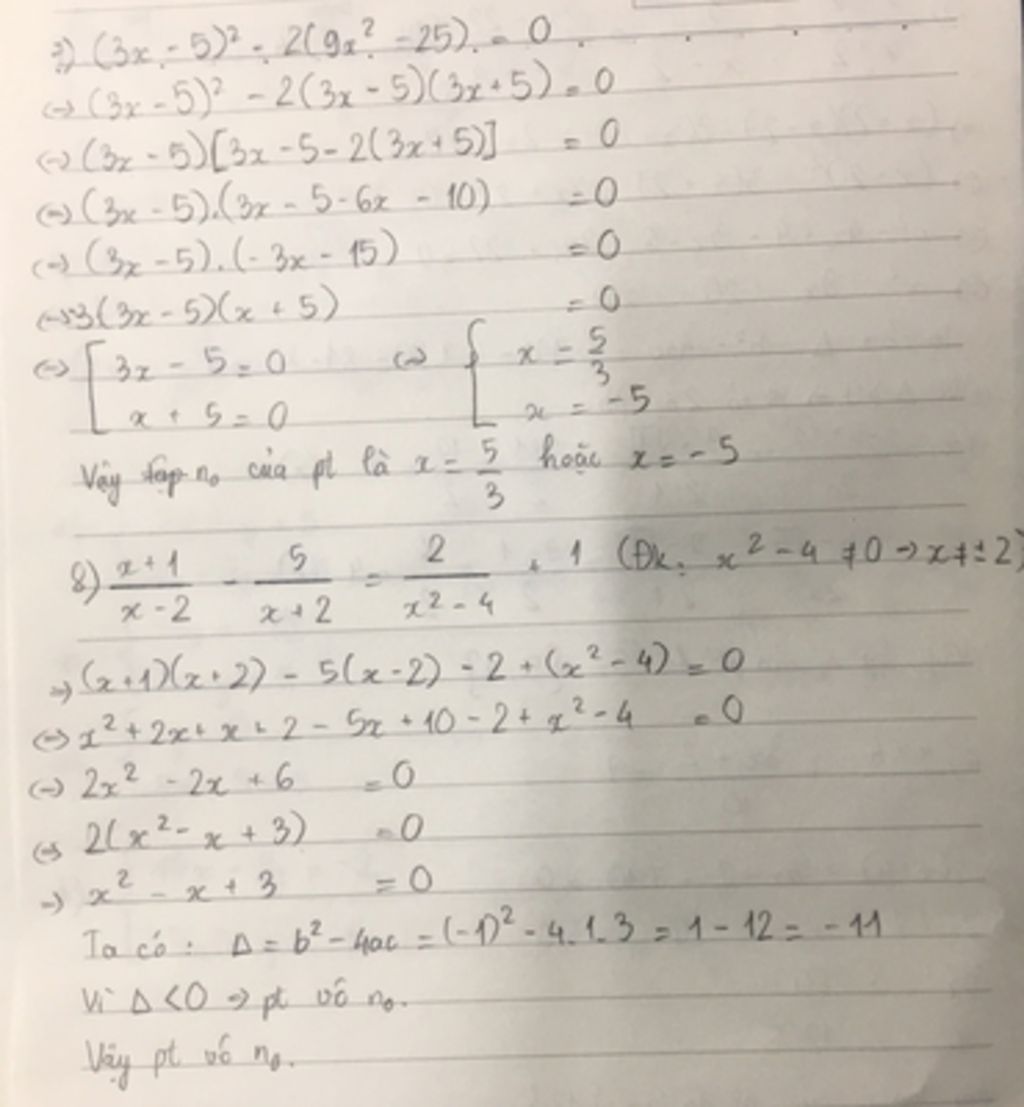 7) (3x - 5)² - 2(9x² - 25) = 0
<-> (3x - 5)² - 2(3x - 5)(3x + 5) = 0
<-> (3x - 5)[3x - 5 - 2(3x + 5)] = 0
<-> (3x - 5).(3x - 5 - 6x - 10) = 0
<-> (3x - 5).(-3x - 15) = 0
<-> -3(3x - 5)(x + 5) = 0
<-> [ 3x - 5 = 0 <-> [ x = 5/3
x + 5 = 0 x = -5
Vậy tập no của pt là x = 5/3 hoặc x = -5
8) (x+1)/(x-2) - 5/(x+2) = 2/(x²-4) + 1 (Đk: x² - 4 ≠ 0 -> x ≠ ±2)
=> (x+1)(x+2) - 5(x-2) - 2 + (x² - 4) = 0
<-> x² + 2x + x + 2 - 5x + 10 - 2 + x² - 4 = 0
<-> 2x² - 2x + 6 = 0
<-> 2(x² - x + 3) = 0
-> x² - x + 3 = 0
Ta có: Δ = b² - 4ac = (-1)² - 4.1.3 = 1 - 12 = -11
Vì Δ < 0 => pt vô no.
Vậy pt vô no.